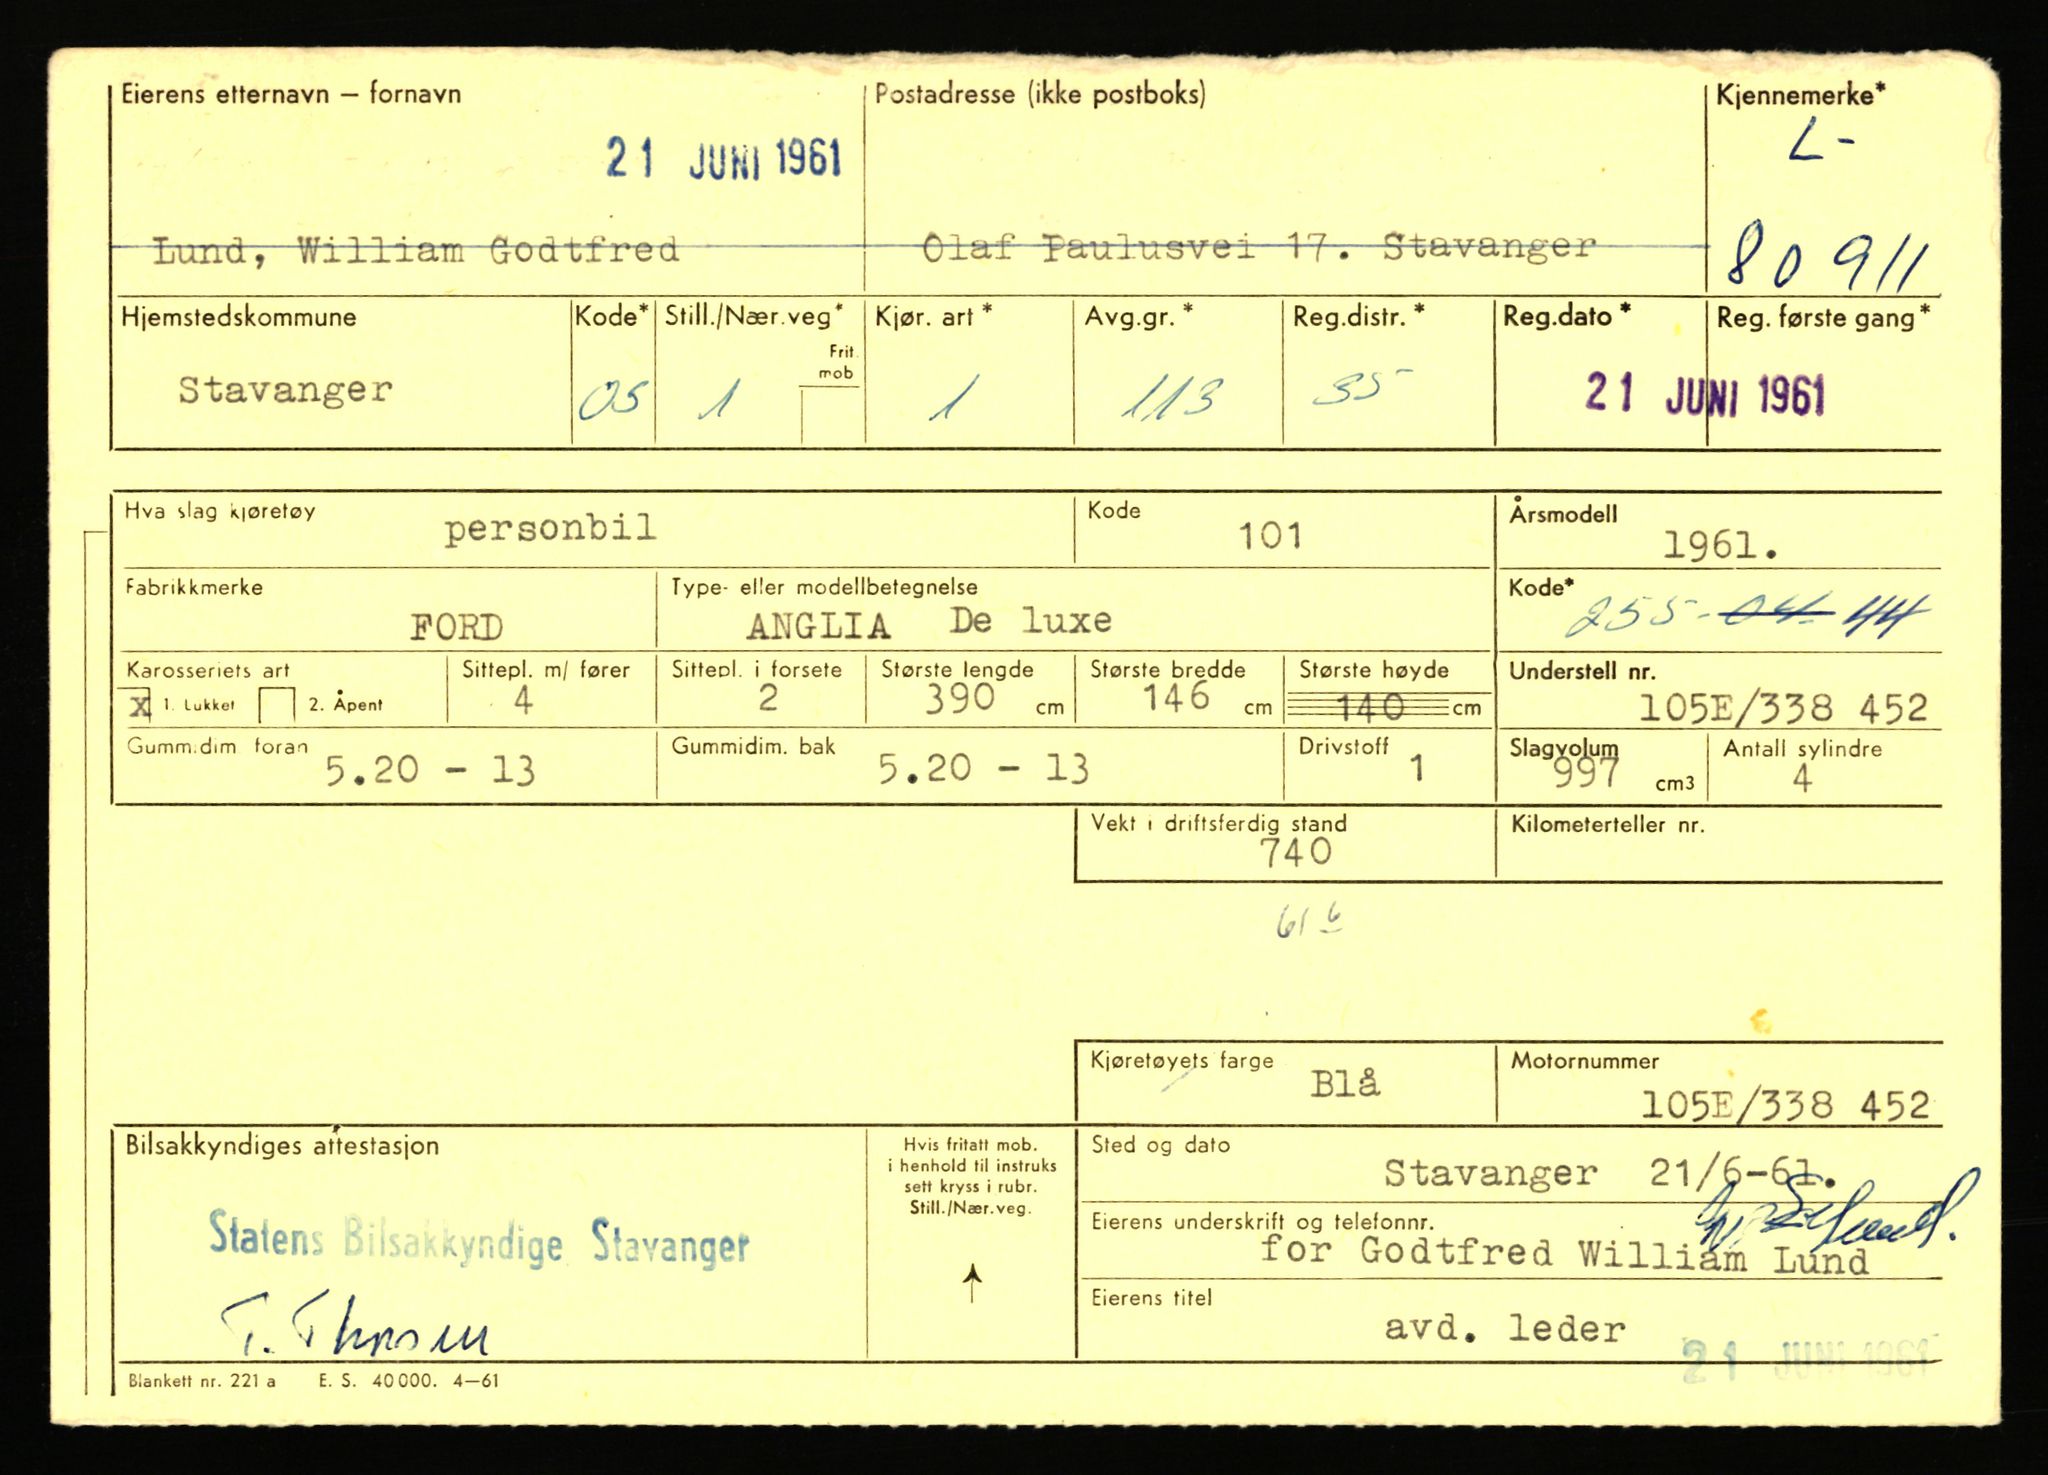 Eierens etternavn – fornavn Postadresse (ikke postboks) Kjennemerke*
L-
21 JUNI 1961
Lund, William Godtfred Olaf Paulusvei 17. Stavanger 80911
Hjemstedskommune Kode* Still./Nær.veg* Kjør. art * Avg.gr. * Reg.distr. * Reg.dato * Reg. første gang *
Frit.
mob
Stavanger 03 1 1 113 35 21 JUNI 1961
Hva slag kjøretøy personbil Kode 101 Årsmodell 1961.
Fabrikkmerke Type- eller modellbetegnelse Kode*
FORD ANGLIA De luxe 255-04 44
Karosseriets art Sittepl. m/ fører Sittepl. i forsete Største lengde Største bredde Største høyde Understell nr.
x 1. Lukket 2. Åpent 4 2 390 cm 146 cm 140 cm 105E/338 452
Gummidim. foran Gummidim. bak Drivstoff Slagvolum Antall sylindre
5.20 - 13 5.20 - 13 1 997 cm3 4
Vekt i driftsferdig stand Kilometerteller nr.
740
61 6
Kjøretøyets farge Blå Motornummer
105E/338 452
Bilsakkyndiges attestasjon Hvis fritatt mob. Sted og dato
i henhold til instruks
sett kryss i rubr.
Still./Nær.veg.
Stavanger 21/6-61.
Statens Bilsakkyndige Stavanger Eierens underskrift og telefonnr.
for Godtfred William Lund
Eierens titel
T. Thorsen avd. leder
21 JUNI 1961
Blankett nr. 221 a E. S. 40 000. 4—61